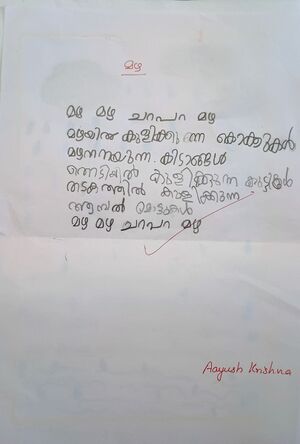 മഴ
മഴ മഴ ചറപറ മഴ
മഴയിൽ കുളിക്കുന്ന കൊക്കുകൾ
മഴനനയുന്ന കിടാങ്ങൾ
തൊടിയിൽ കുളിക്കുന്ന കുട്ടികൾ
തടകത്തിൽ കുളിക്കുന്ന
ആമ്പൽ മൊട്ടുകൾ
മഴ മഴ ചറപറ മഴ
Aayush Krishna